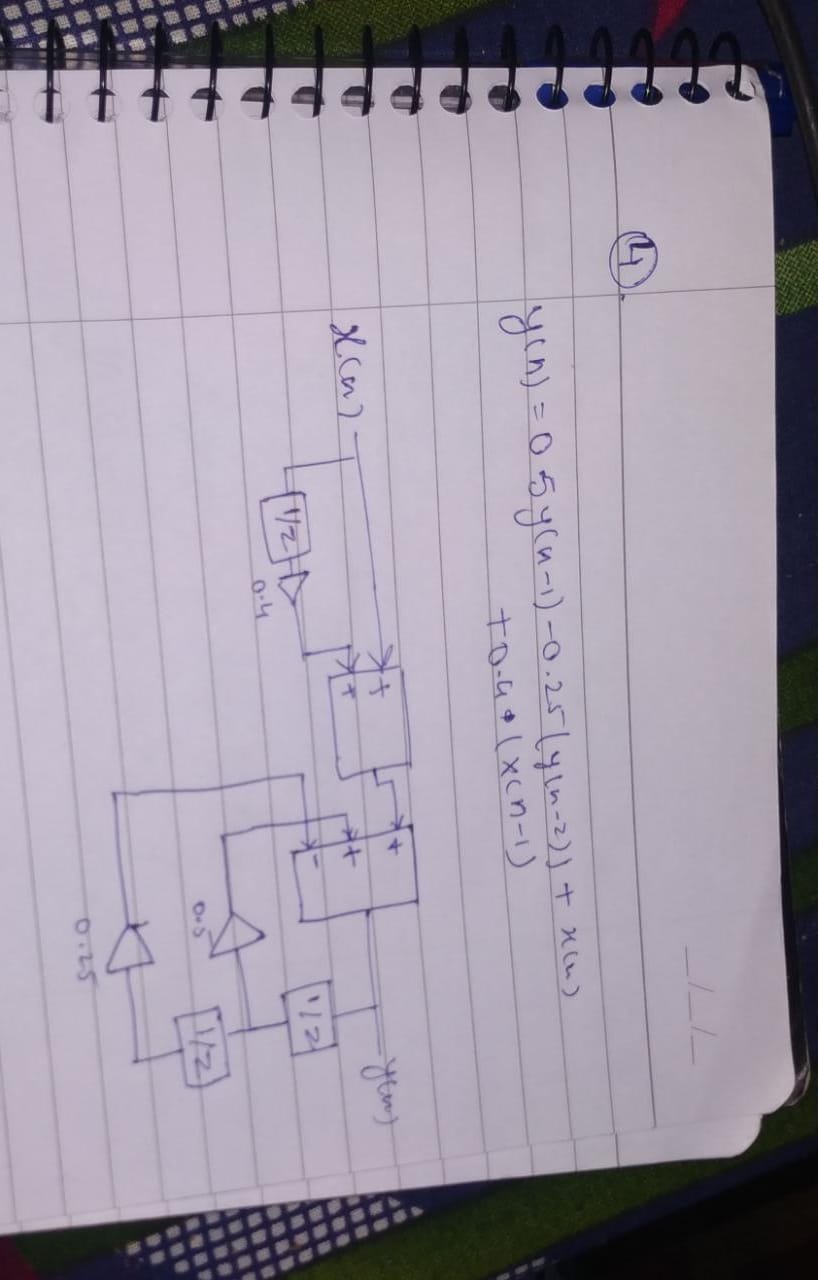 _/_/_
4.
y(n) = 0.5y(n-1) - 0.25(y(n-2)) + x(n)
+ 0.4 • (x(n-1)
x(n)
+
+
+
+
-
y(n)
1/Z
0.4
1/Z
0.5
1/Z
0.25